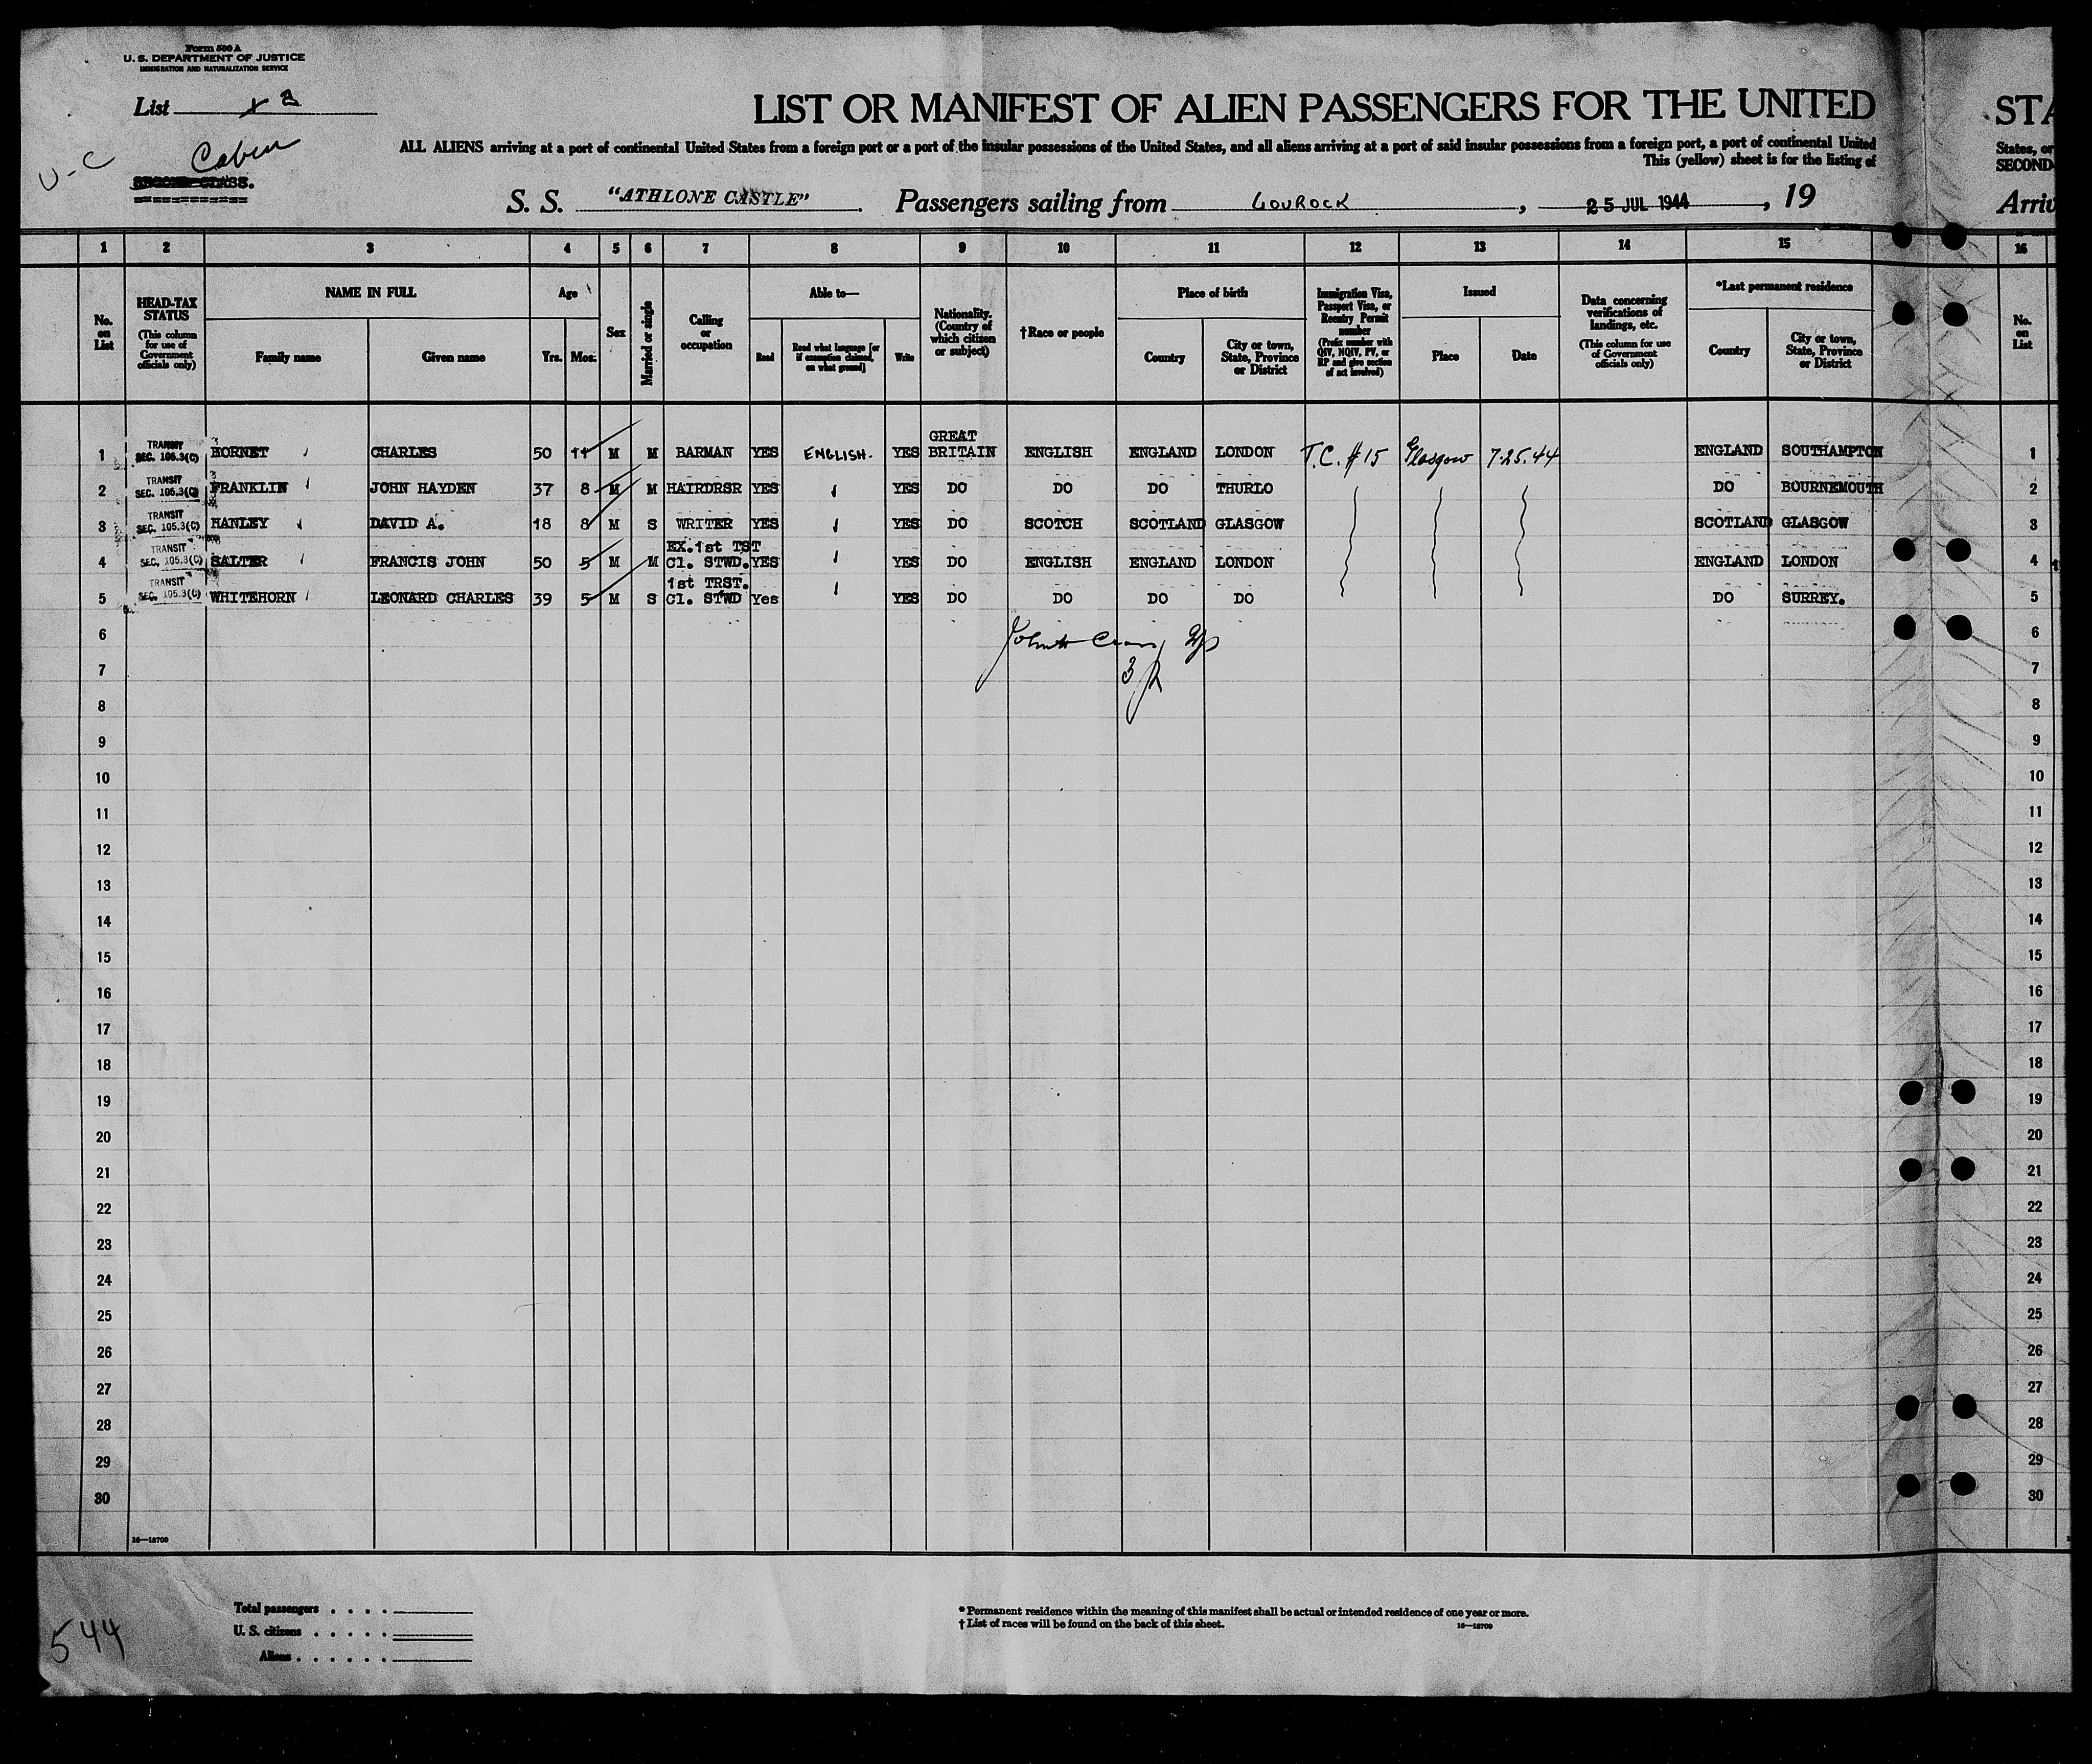 Form 500 A
U. S. DEPARTMENT OF JUSTICE
IMMIGRATION AND NATURALIZATION SERVICE
List 3
U-C
Cabin
SECOND-CLASS.
LIST OR MANIFEST OF ALIEN PASSENGERS FOR THE UNITED STA
ALL ALIENS arriving at a port of continental United States from a foreign port or a port of the insular possessions of the United States, and all aliens arriving at a port of said insular possessions from a foreign port, a port of continental United States, or
This (yellow) sheet is for the listing of SECOND-
S. S. "ATHLONE CASTLE" Passengers sailing from GOUROCK, 25 JUL 1944, 19 Arriv
1 2 3 4 5 6 7 8 9 10 11 12 13 14 15 16
No. on List
HEAD-TAX STATUS (This column for use of Government officials only)
NAME IN FULL Family name Given name
Age Yrs. Mos.
Sex
Married or single
Calling or occupation
Able to— Read Read what language [or if exemption claimed, on what ground] Write
Nationality. (Country of which citizen or subject)
†Race or people
Place of birth Country City or town, State, Province or District
Immigration Visa, Passport Visa, or Reentry Permit number (Prefix number with QIV, NQIV, PV, or RP and give section of act involved)
Issued Place Date
Data concerning verifications of landings, etc. (This column for use of Government officials only)
*Last permanent residence Country City or town, State, Province or District
No. on List
1 TRANSIT SEC. 105.3(C) HORNET CHARLES 50 11 M M BARMAN YES ENGLISH. YES GREAT BRITAIN ENGLISH ENGLAND LONDON T.C. #15 Glasgow 7.25.44 ENGLAND SOUTHAMPTON 1
2 TRANSIT SEC. 105.3(C) FRANKLIN JOHN HAYDEN 37 8 M M HAIRDRSR YES YES DO DO DO THURLO DO BOURNEMOUTH 2
3 TRANSIT SEC. 105.3(C) HANLEY DAVID A. 18 8 M S WRITER YES YES DO SCOTCH SCOTLAND GLASGOW SCOTLAND GLASGOW 3
4 TRANSIT SEC. 105.3(C) SALTER FRANCIS JOHN 50 5 M M EX.1st TST Cl. STWD. YES YES DO ENGLISH ENGLAND LONDON ENGLAND LONDON 4
5 TRANSIT SEC. 105.3(C) WHITEHORN LEONARD CHARLES 39 5 M S 1st TRST. Cl. STWD Yes YES DO DO DO DO DO SURREY. 5
6 6
7 7
8 8
9 9
10 10
11 11
12 12
13 13
14 14
15 15
16 16
17 17
18 18
19 19
20 20
21 21
22 22
23 23
24 24
25 25
26 26
27 27
28 28
29 29
30 30
16—18709
Total passengers . . . .
U. S. citizens . . . . .
Aliens . . . . . .
544
* Permanent residence within the meaning of this manifest shall be actual or intended residence of one year or more.
† List of races will be found on the back of this sheet. 16—18709